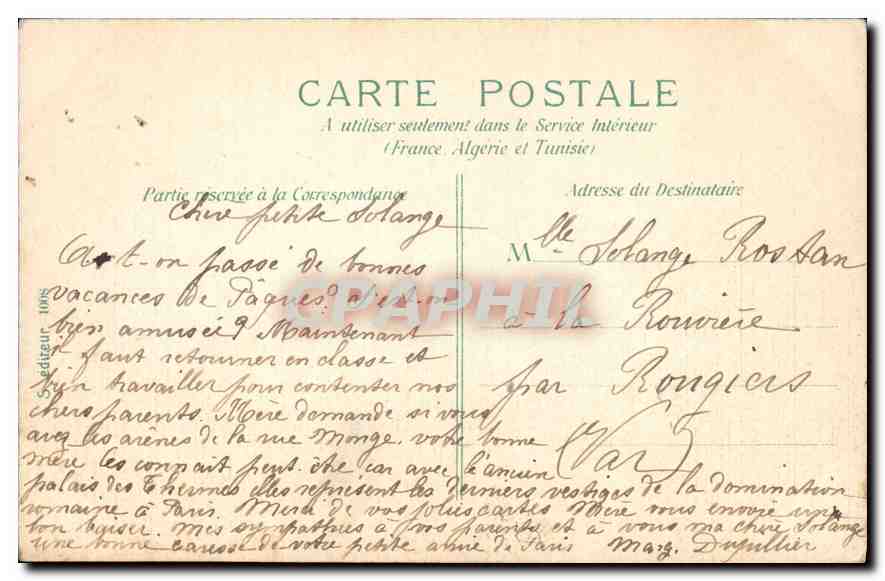 CARTE POSTALE
A utiliser seulement dans le Service Intérieur
(France, Algérie et Tunisie)
Partie réservée à la Correspondance
Adresse du Destinataire
Chère petite Solange
A-t-on passé de bonnes
vacances de Pâques? s'est-on
bien amusée? Maintenant
il faut retourner en classe et
bien travailler pour contenter nos
chers parents. Mère demande si vous
avez les arènes de la rue Monge. votre bonne
mère les connait peut-être car avec l'ancien
palais des Thermes elles représent les derniers vestiges de la domination
romaine à Paris. Merci de vos jolies cartes Mère vous envoie un
bon baiser. Mes sympathies à vos parents et à vous ma chère Solange
une bonne caresse de votre petite amie de Paris Marg. Dupillier
Mlle Solange Rostan
à la Rouvière
par Rougiers
(Var)
éditeur 1008
CPAPHIL